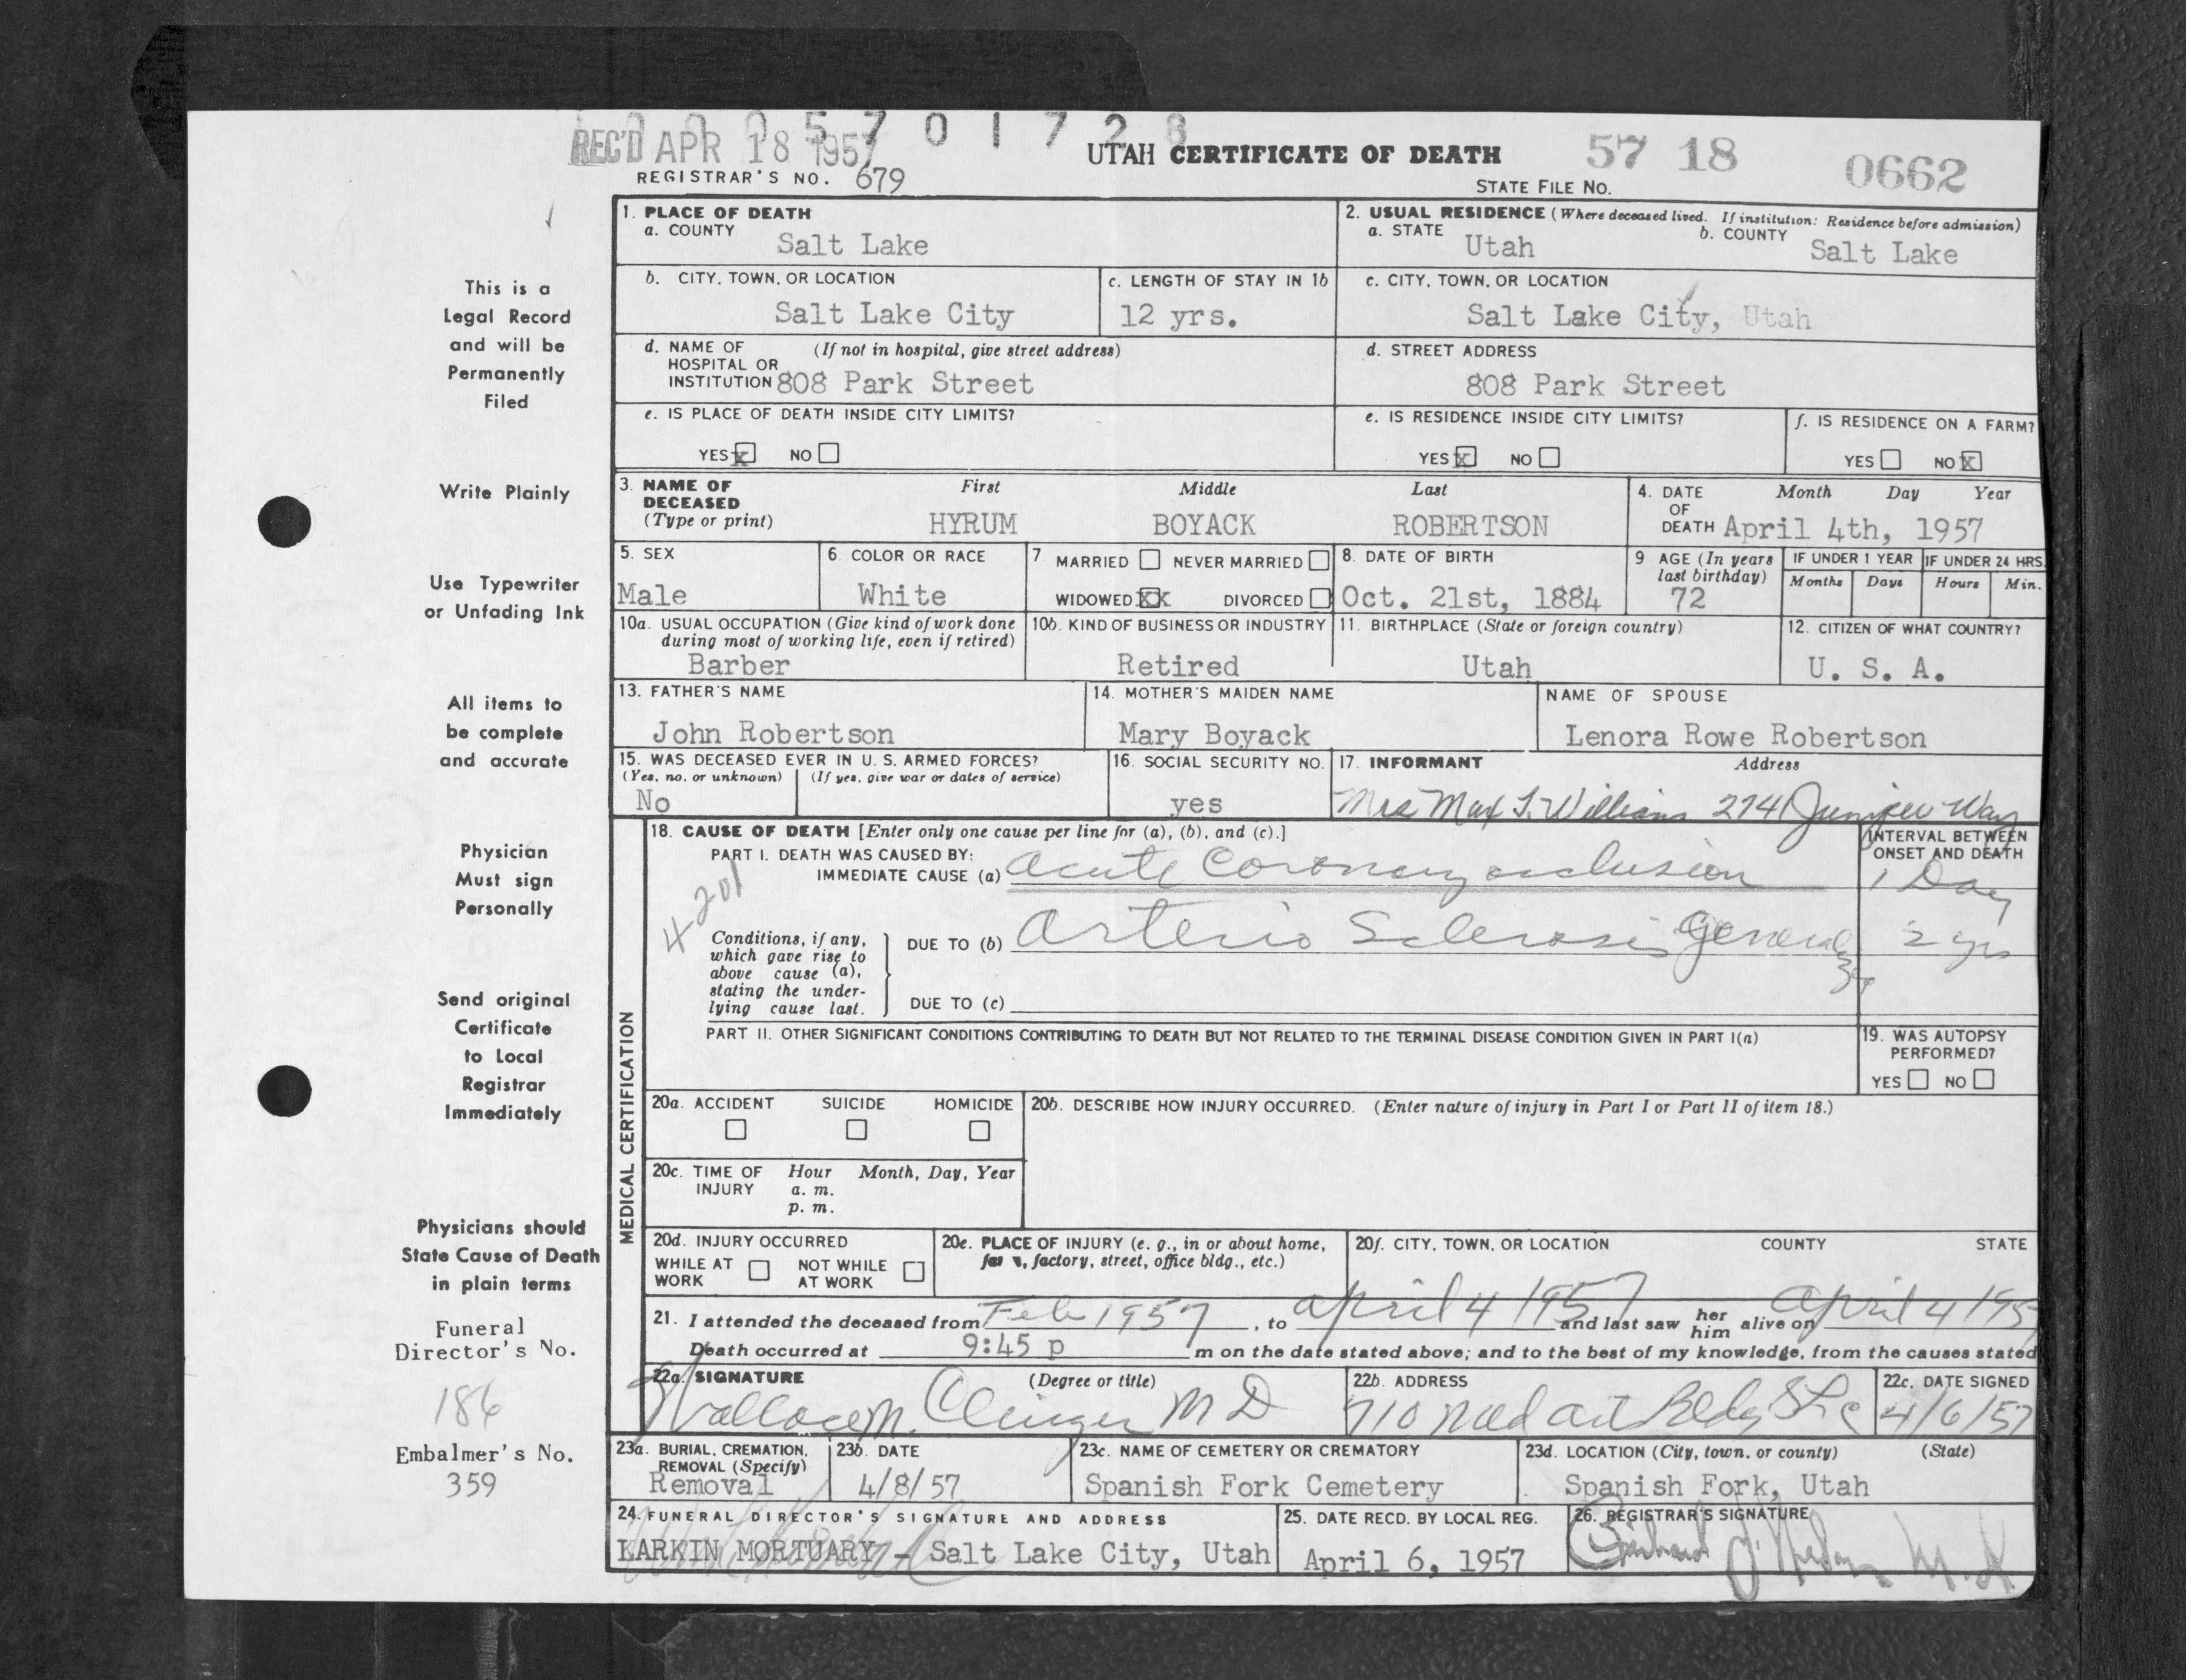 REC'D APR 18 1957
0 0 0 5 7 0 1 7 2 8
UTAH CERTIFICATE OF DEATH
57 18 0662
REGISTRAR'S NO. 679
STATE FILE NO.
This is a
Legal Record
and will be
Permanently
Filed
Write Plainly
Use Typewriter
or Unfading Ink
All items to
be complete
and accurate
Physician
Must sign
Personally
Send original
Certificate
to Local
Registrar
Immediately
Physicians should
State Cause of Death
in plain terms
Funeral
Director's No.
186
Embalmer's No.
359
1. PLACE OF DEATH
a. COUNTY
Salt Lake
2. USUAL RESIDENCE (Where deceased lived. If institution: Residence before admission)
a. STATE Utah b. COUNTY Salt Lake
b. CITY, TOWN, OR LOCATION
Salt Lake City
c. LENGTH OF STAY IN 1b
12 yrs.
c. CITY, TOWN, OR LOCATION
Salt Lake City, Utah
d. NAME OF (If not in hospital, give street address)
HOSPITAL OR
INSTITUTION 808 Park Street
d. STREET ADDRESS
808 Park Street
e. IS PLACE OF DEATH INSIDE CITY LIMITS?
YES x NO
e. IS RESIDENCE INSIDE CITY LIMITS?
YES x NO
f. IS RESIDENCE ON A FARM?
YES NO x
3. NAME OF First Middle Last
DECEASED
(Type or print) HYRUM BOYACK ROBERTSON
4. DATE Month Day Year
OF
DEATH April 4th, 1957
5. SEX
Male
6. COLOR OR RACE
White
7. MARRIED NEVER MARRIED
WIDOWED XX DIVORCED
8. DATE OF BIRTH
Oct. 21st, 1884
9 AGE (In years
last birthday)
72
IF UNDER 1 YEAR
Months Days
IF UNDER 24 HRS.
Hours Min.
10a. USUAL OCCUPATION (Give kind of work done
during most of working life, even if retired)
Barber
10b. KIND OF BUSINESS OR INDUSTRY
Retired
11. BIRTHPLACE (State or foreign country)
Utah
12. CITIZEN OF WHAT COUNTRY?
U. S. A.
13. FATHER'S NAME
John Robertson
14. MOTHER'S MAIDEN NAME
Mary Boyack
NAME OF SPOUSE
Lenora Rowe Robertson
15. WAS DECEASED EVER IN U. S. ARMED FORCES?
(Yes, no, or unknown) (If yes, give war or dates of service)
No
16. SOCIAL SECURITY NO.
yes
17. INFORMANT Address
Mrs Max T. Williams 274 Juniper Way
MEDICAL CERTIFICATION
18. CAUSE OF DEATH [Enter only one cause per line for (a), (b), and (c).]
PART I. DEATH WAS CAUSED BY:
IMMEDIATE CAUSE (a) Acute Coronary occlusion
INTERVAL BETWEEN
ONSET AND DEATH
1 Day
4201
Conditions, if any,
which gave rise to
above cause (a),
stating the under-
lying cause last.
DUE TO (b) Arterio Sclerosis General
2 yrs
DUE TO (c)
PART II. OTHER SIGNIFICANT CONDITIONS CONTRIBUTING TO DEATH BUT NOT RELATED TO THE TERMINAL DISEASE CONDITION GIVEN IN PART I(a)
19. WAS AUTOPSY
PERFORMED?
YES NO
20a. ACCIDENT SUICIDE HOMICIDE
20b. DESCRIBE HOW INJURY OCCURRED. (Enter nature of injury in Part I or Part II of item 18.)
20c. TIME OF Hour Month, Day, Year
INJURY a. m.
p. m.
20d. INJURY OCCURRED
WHILE AT NOT WHILE
WORK AT WORK
20e. PLACE OF INJURY (e. g., in or about home,
factory, street, office bldg., etc.)
20f. CITY, TOWN, OR LOCATION COUNTY STATE
21. I attended the deceased from Feb 1957, to April 4 1957 and last saw her him alive on April 4 1957
Death occurred at 9:45 p m on the date stated above; and to the best of my knowledge, from the causes stated
22a. SIGNATURE (Degree or title)
Wallace M. Clinger M D
22b. ADDRESS
710 Med art Bldg SLC
22c. DATE SIGNED
4/6/57
23a. BURIAL, CREMATION,
REMOVAL (Specify)
Removal
23b. DATE
4/8/57
23c. NAME OF CEMETERY OR CREMATORY
Spanish Fork Cemetery
23d. LOCATION (City, town, or county) (State)
Spanish Fork, Utah
24. FUNERAL DIRECTOR'S SIGNATURE AND ADDRESS
LARKIN MORTUARY - Salt Lake City, Utah
25. DATE RECD. BY LOCAL REG.
April 6, 1957
26. REGISTRAR'S SIGNATURE